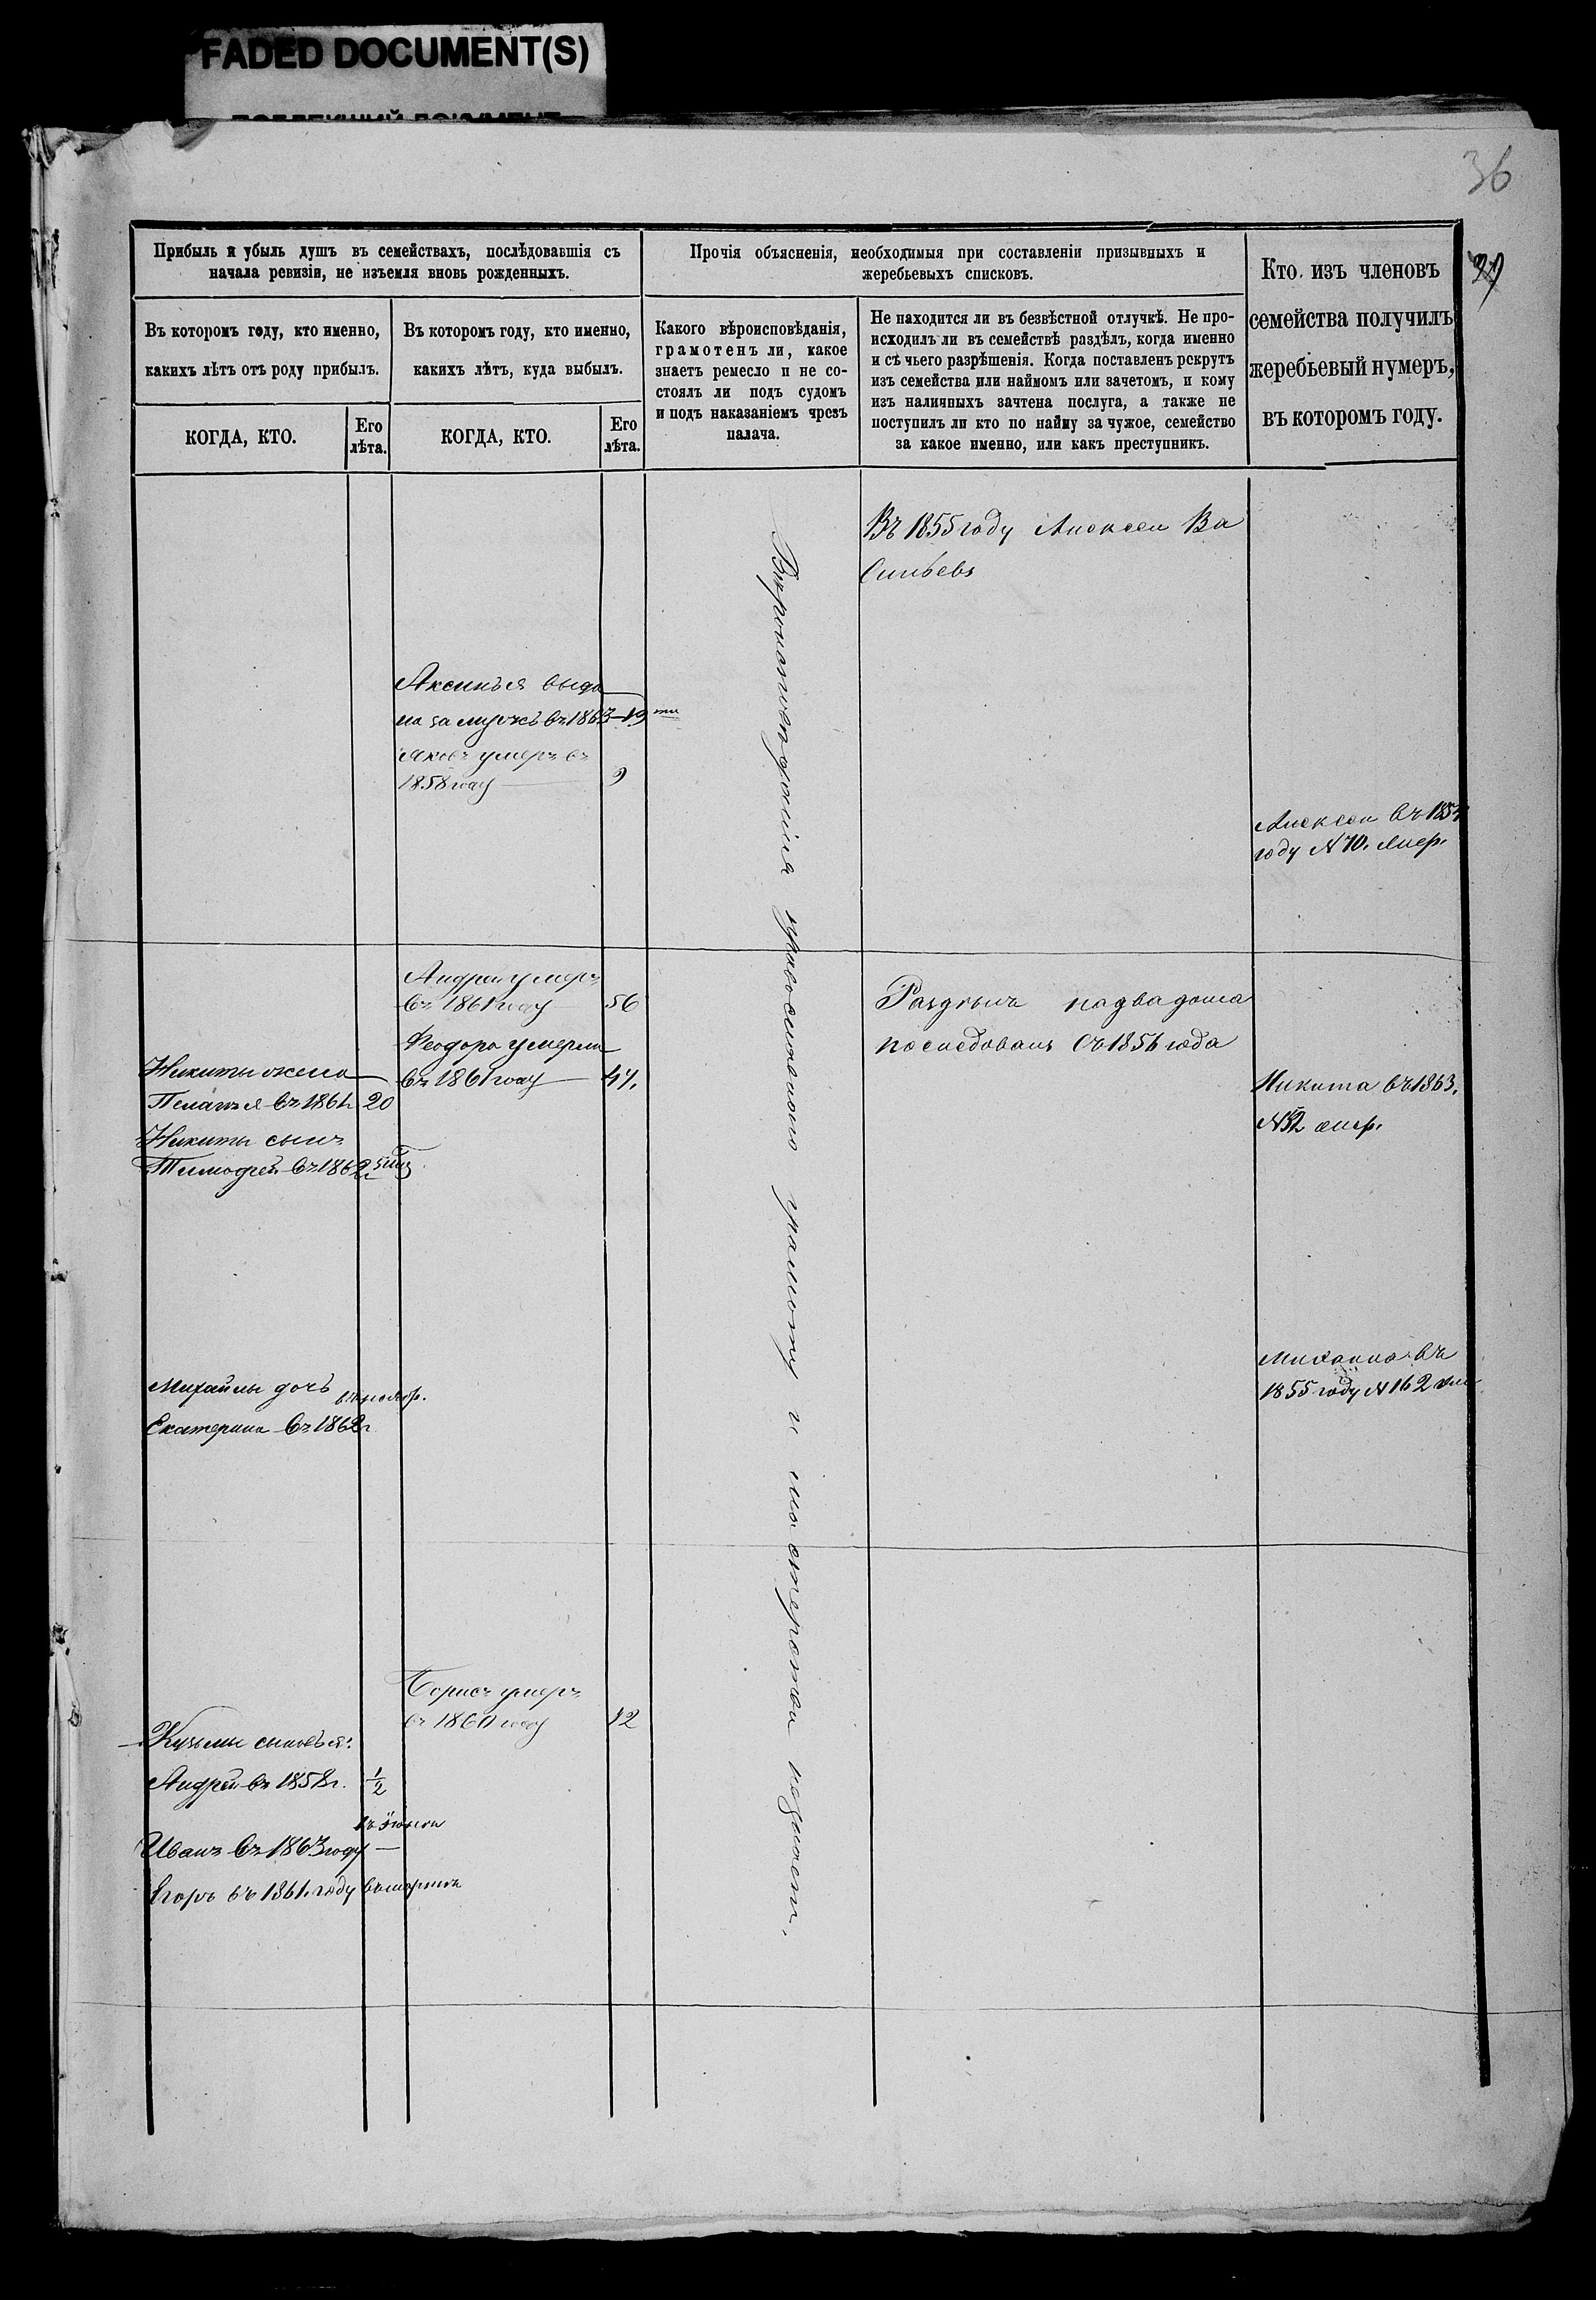 FADED DOCUMENT(S)
36
29
Прибыль и убыль душъ въ семействахъ, послѣдовавшія съ
начала ревизіи, не изъемля вновь рожденныхъ.
Въ которомъ году, кто именно,
какихъ лѣтъ отъ роду прибылъ.
КОГДА, КТО.
Его
лѣта.
Въ которомъ году, кто именно,
какихъ лѣтъ, куда выбылъ.
КОГДА, КТО.
Его
лѣта.
Прочія объясненія, необходимыя при составленіи призывныхъ и
жеребьевыхъ списковъ.
Какого вѣроисповѣданія,
грамотенъ ли, какое
знаетъ ремесло и не со-
стоялъ ли подъ судомъ
и подъ наказаніемъ чрезъ
палача.
Не находится ли въ безвѣстной отлучкѣ. Не про-
исходилъ ли въ семействѣ раздѣлъ, когда именно
и съ чьего разрѣшенія. Когда поставленъ рекрутъ
изъ семейства или наймомъ или зачетомъ, и кому
изъ наличныхъ зачтена послуга, а также не
поступилъ ли кто по найму за чужое, семейство
за какое именно, или какъ преступникъ.
Кто изъ членовъ
семейства получилъ
жеребьевый нумеръ,
въ которомъ году.
Въ 1855 году Алексеи Ва
сильевъ
Аксинья выда
на замужъ въ 1863 – 19
Яковъ умеръ въ
1858 году 9
Алексеи въ 185
году № 70.
Вѣроисповеданія православного грамоту и мастерства незнаетъ.
Андреи умеръ
въ 1861 году 56
Феодора умерла
въ 1861 году 47.
Разделъ на два дома
последовалъ съ 1856 года
Никиты жена
Пелагея въ 1861. 20
Никиты сынъ
Тимофей въ 1862
Никита въ 1863.
Михайлы дочь
Екатерина въ 1862 г
Михаила въ
1855 году № 162
Борисъ умеръ
въ 1860 году 12
Кузьмы сыновья:
Андрей въ 1858 г. 1/2
Иванъ въ 1863 году —
Егоръ въ 1861. году